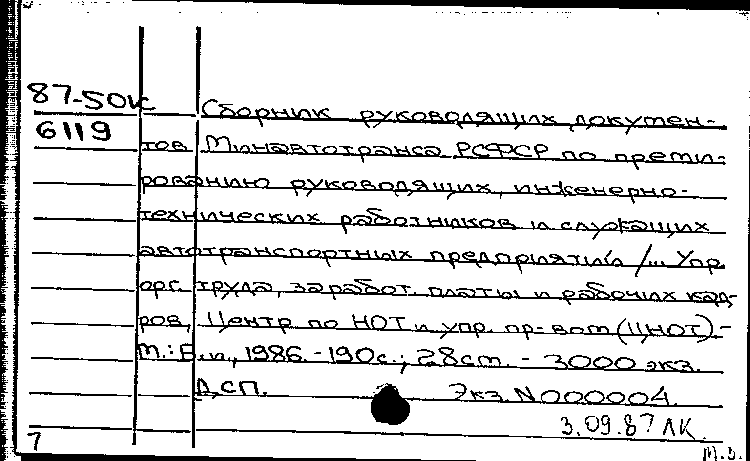 87-50к Сборник руководящих докумен-
6119 тов Минавтотранса РСФСР по преми-
рованию руководящих, инженерно-
технических работников и служащих
автотранспортных предприятий /... Упр.
орг. труда, заработ. платы и рабочих кад-
ров, Центр по НОТ и упр. пр-вом (ЦНОТ).-
М.: Б.и., 1986.-190с.; 28см. - 3000 экз.
ДСП. Экз. N000004.
3.09.87 ЛК.
7